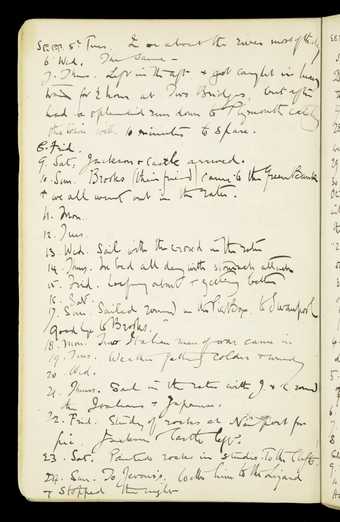 Sept. 5th Tues. I on about the river most of the day
6 Wed. The same -
7. Thurs. Left in the aft & got caught in heavy
for 2 hours at Two Bridges, but after
had a splendid run down to Plymouth Catching
the train with 10 minutes to spare.
8. Frid.
9. Sat. Jackson & Castle arrived.
10. Sun Brooks (their friend) came to the Green Bank
& we all went out in the
11. Mon
12. Tues
13. Wed. Sail with the crowd in the
14. Thurs. In bed all day with stomach attack
15. Frid. Loafing about & getting better
16. Sat.
17. Sun. Sailed round in the to Swanpool
Goodbye to Brooks.
18. Mon. Two Italian men of war came in
19. Tues. Weather getting colder & windy
20. Wed.
21. Thurs. Sail in the with J & C round
the Italians & Japanese.
22. Frid. Study of rocks at Newport for
pic. Jackson Castle left.
23. Sat. Painted rocks in studio. To the Clifts.
24. Sun. To Jevons's. Walk him to the Lizard
& stopped the night